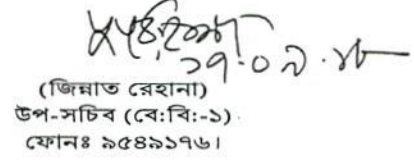 ১৭.০৯.১৮
(জিন্নাত রেহানা)
উপ-সচিব (বে:বি:-১)
ফোনঃ ৯৫৪৯১৭৬।